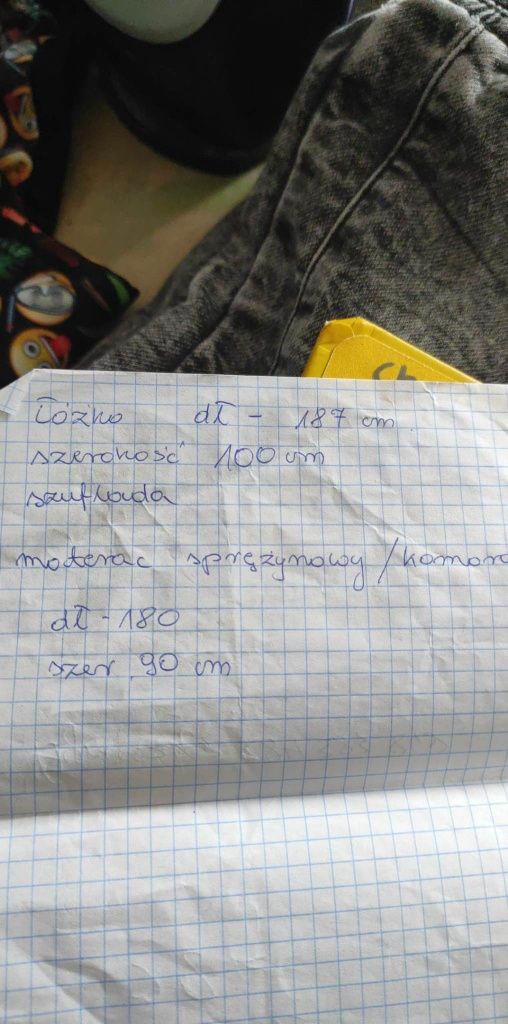 łóżko dł - 187 cm
szerokość 100 cm
szuflada
materac sprężynowy /
dł - 180
szer 90 cm